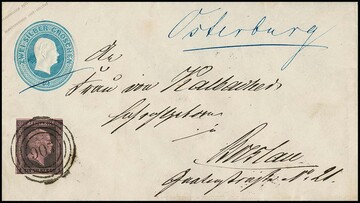 ZWEI SILBER GROSCHEN
Osterburg
An
Frau von
Hochwohlgeboren
zu
Breslau
Gartenstraße No. 21.